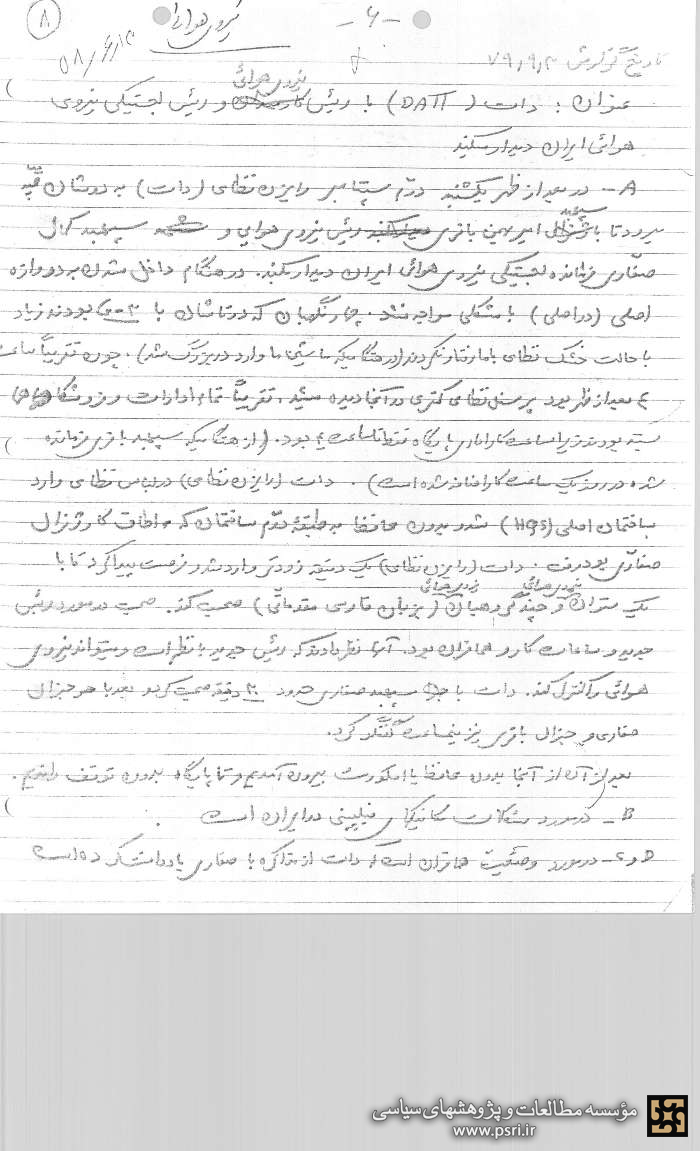 ۸
نیروی هوائی
-۶-
۵۸/۶/۱۲
تاریخ گزارش ۷۹,۹,۳
نیروی هوائی
عنوان : دات ( DATT ) با رئیس و رئیس لجستیکی نیروی
هوائی ایران دیدار میکند
A – در بعد از ظهر یکشنبه دوّم سپتامبر رایزن نظامی (دات) به دوشان تپه
سپهبد
میرود تا با امیر بهمن باقری رئیس نیروی هوایی و سپهبد کمال
صفاری فرمانده لجستیکی نیروی هوائی ایران دیدار میکند. در هنگام داخل شدن به دروازه
اصلی (در اصلی) با مشکلی مواجه نشد. چهار نگهبان که در تماشان با ژ-۳ بودند زیاد
با حالت خشک نظامی با ما رفتار نکردند (در هنگامیکه ماشین ما وارد در بزرگ شد). چون تقریباً ساعت
۴ بعد از ظهر بود پرسنل نظامی کمتری در آنجا دیده میشد، تقریباً تمام ادارات و فروشگاه
بسته بودند زیرا ساعت کار اداری پایگاه فقط تا ساعت ۴ بود. (از هنگامیکه سپهبد باقری فرمانده
شده در روز یک ساعت کار اضافه شده است). دات (رایزن نظامی) در لباس نظامی وارد
ساختمان اصلی (HQS) شد و بدون محافظ به طبقهٔ دوّم ساختمان که اطاق کار ژنرال
صفاری بود رفت. دات (رایزن نظامی) یک دقیقه زودتر وارد شد و فرصت پیدا کرد تا با
نیروی هوائی نیروی هوائی
یک ستوان و چند گروهبان (بزبان فارسی مقدماتی) صحبت کند. صحبت در مورد رئیس
جدید و ساعات کار و همافران بود. آنها نظر دادند که رئیس جدید با نظم است و میتواند نیروی
هوائی را کنترل کند. دات با سپهبد صفاری حدود ۲۰ دقیقه صحبت کرد و بعد با هر دو جنرال
صفاری و جنرال باقری نیز نیمساعت گفتگو کرد.
بعد از آن از آنجا بدون محافظ یا اسکورت بیرون آمدیم و تا پایگاه بدون توقف راندیم.
B – در مورد مشکلات مکانیکهای فیلیپینی در ایران است.
C و D – در مورد وضعیت همافران است که دات از مذاکره با صفاری یادداشت کرده است
مؤسسه مطالعات و پژوهشهای سیاسی
www.psri.ir